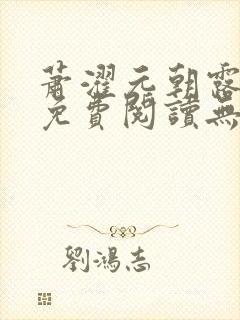 蕭濯元朝露
免費閱讀無
劉鴻志